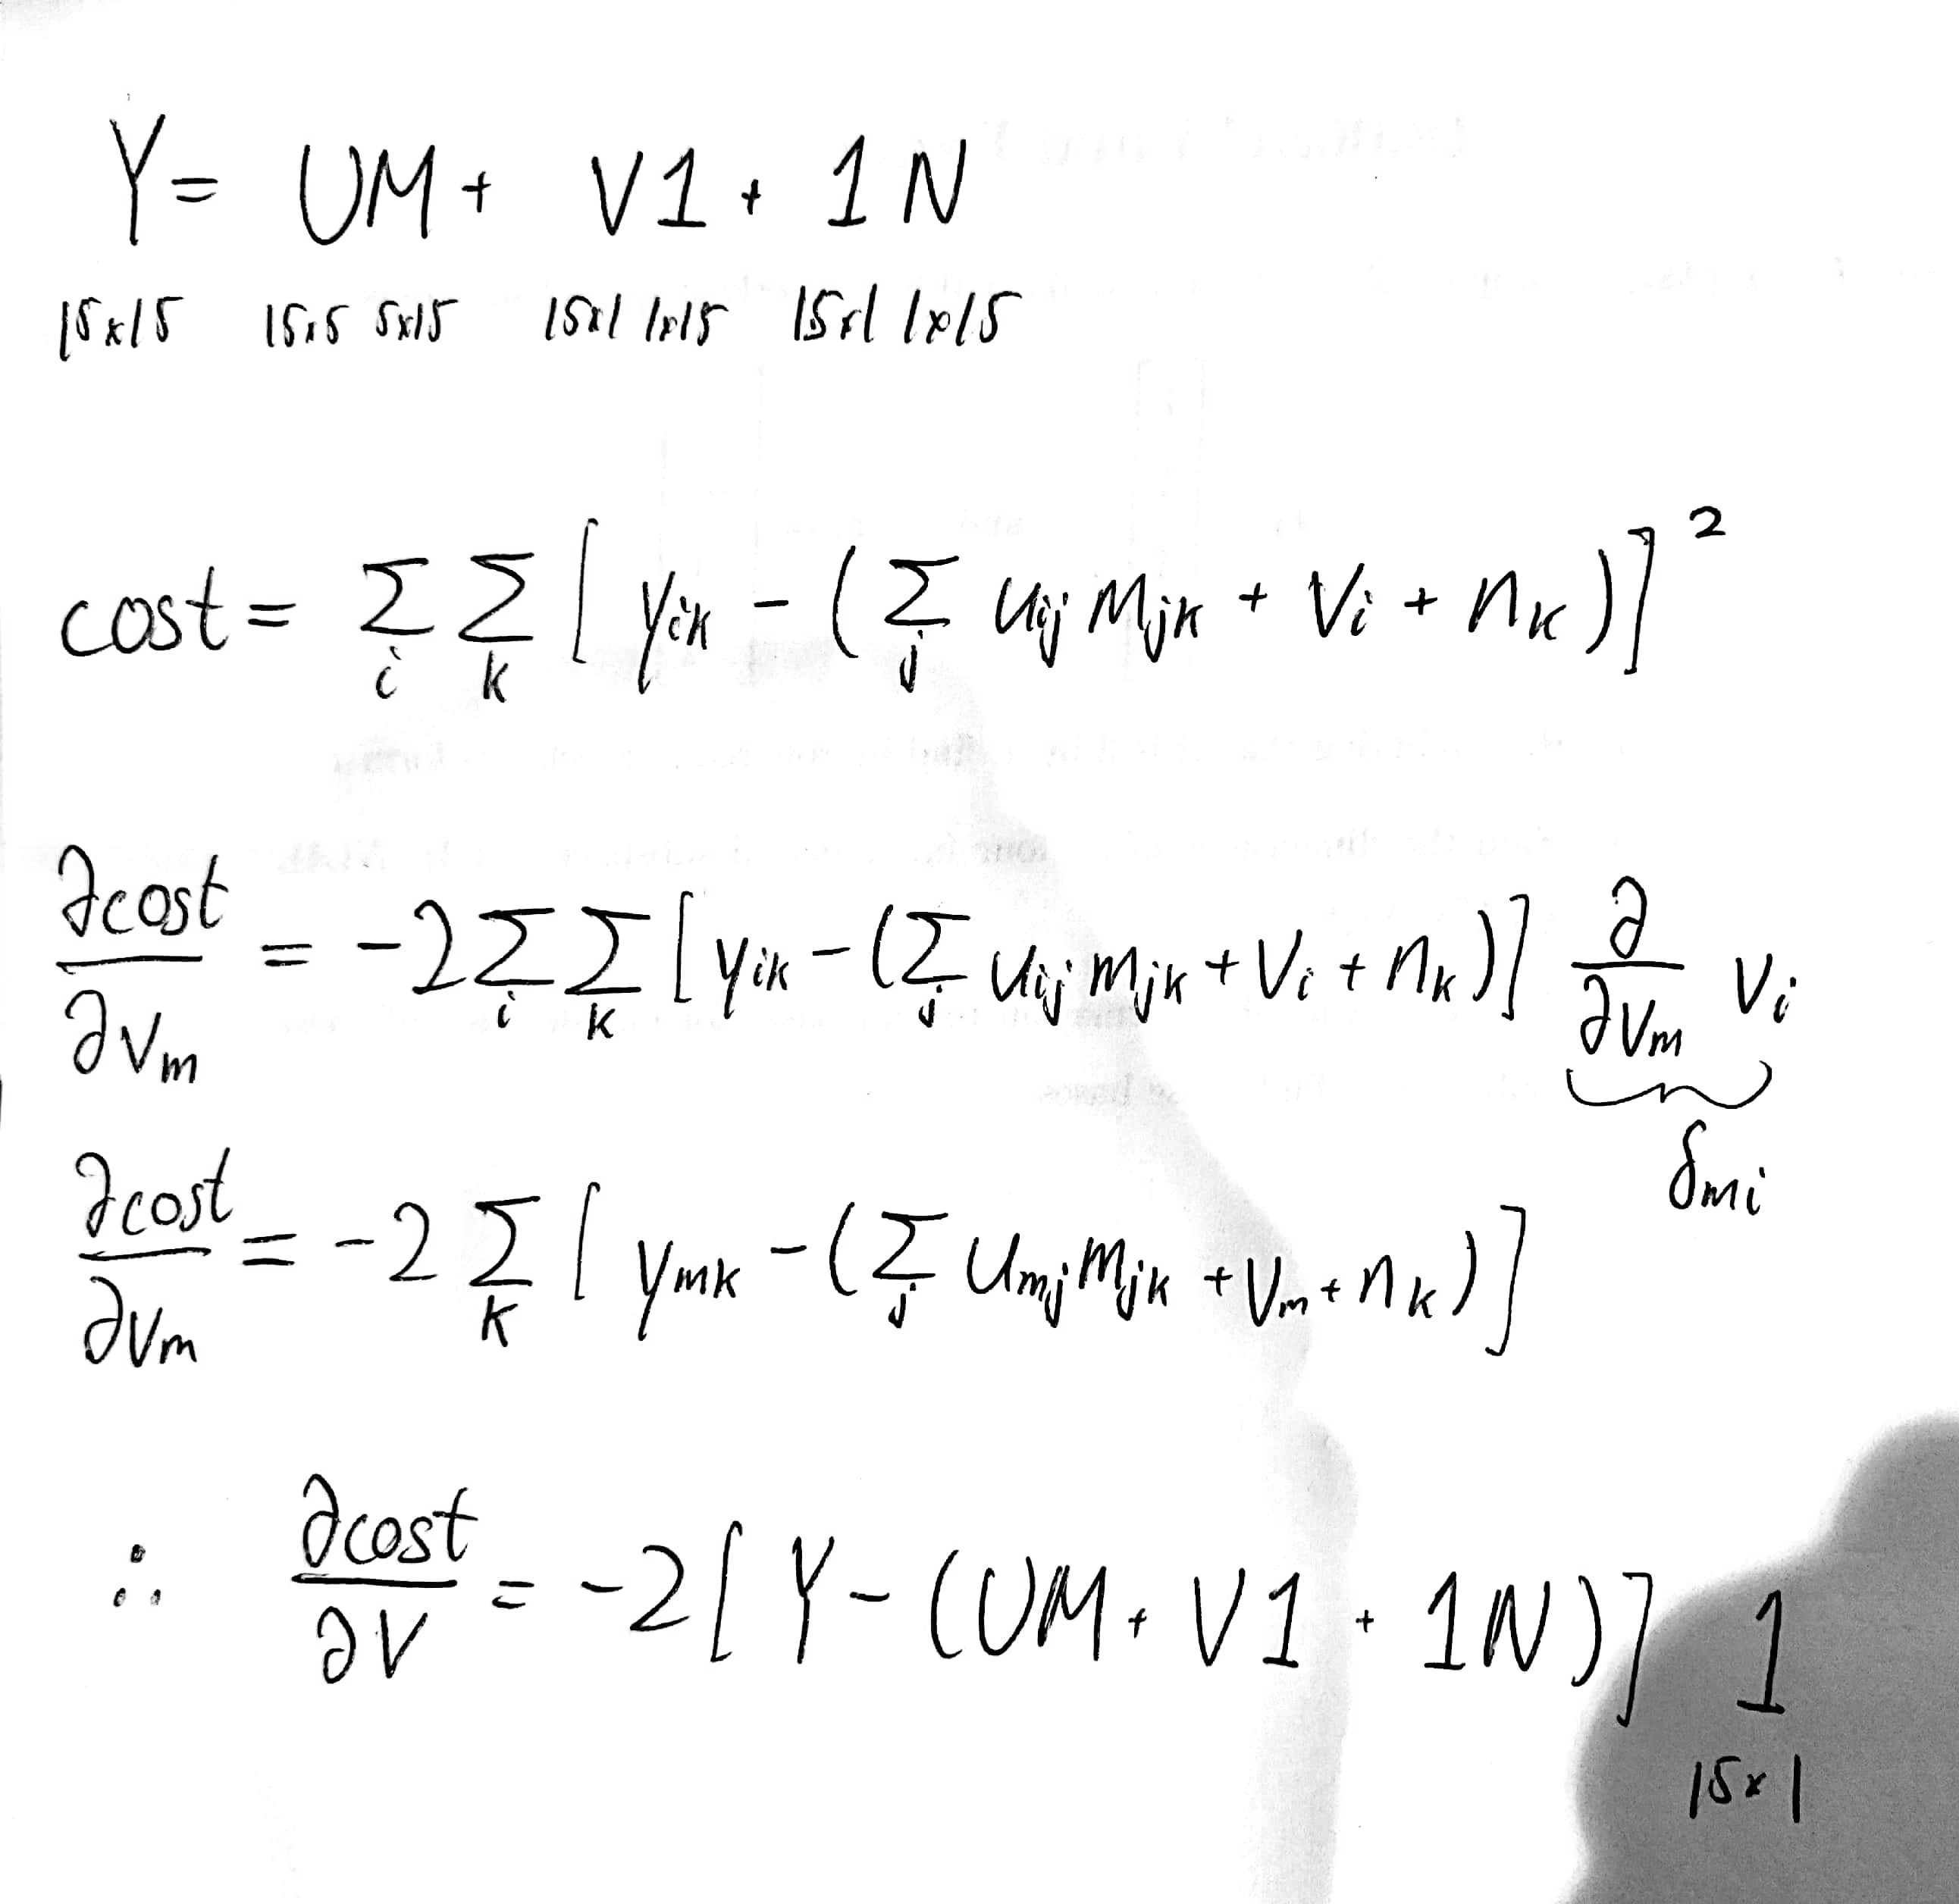 Y = UM + V1 + 1N
15x15 15x5 5x15 15x1 1x15 15x1 1x15
cost = Σ_i Σ_k [ y_ik - ( Σ_j u_ij m_jk + v_i + n_k ) ]^2
∂cost/∂v_m = -2 Σ_i Σ_k [ y_ik - ( Σ_j u_ij m_jk + v_i + n_k ) ] ∂/∂v_m v_i
δ_mi
∂cost/∂v_m = -2 Σ_k [ y_mk - ( Σ_j u_mj m_jk + v_m + n_k ) ]
∴ ∂cost/∂V = -2 [ Y - ( UM + V1 + 1N ) ] 1
15x1